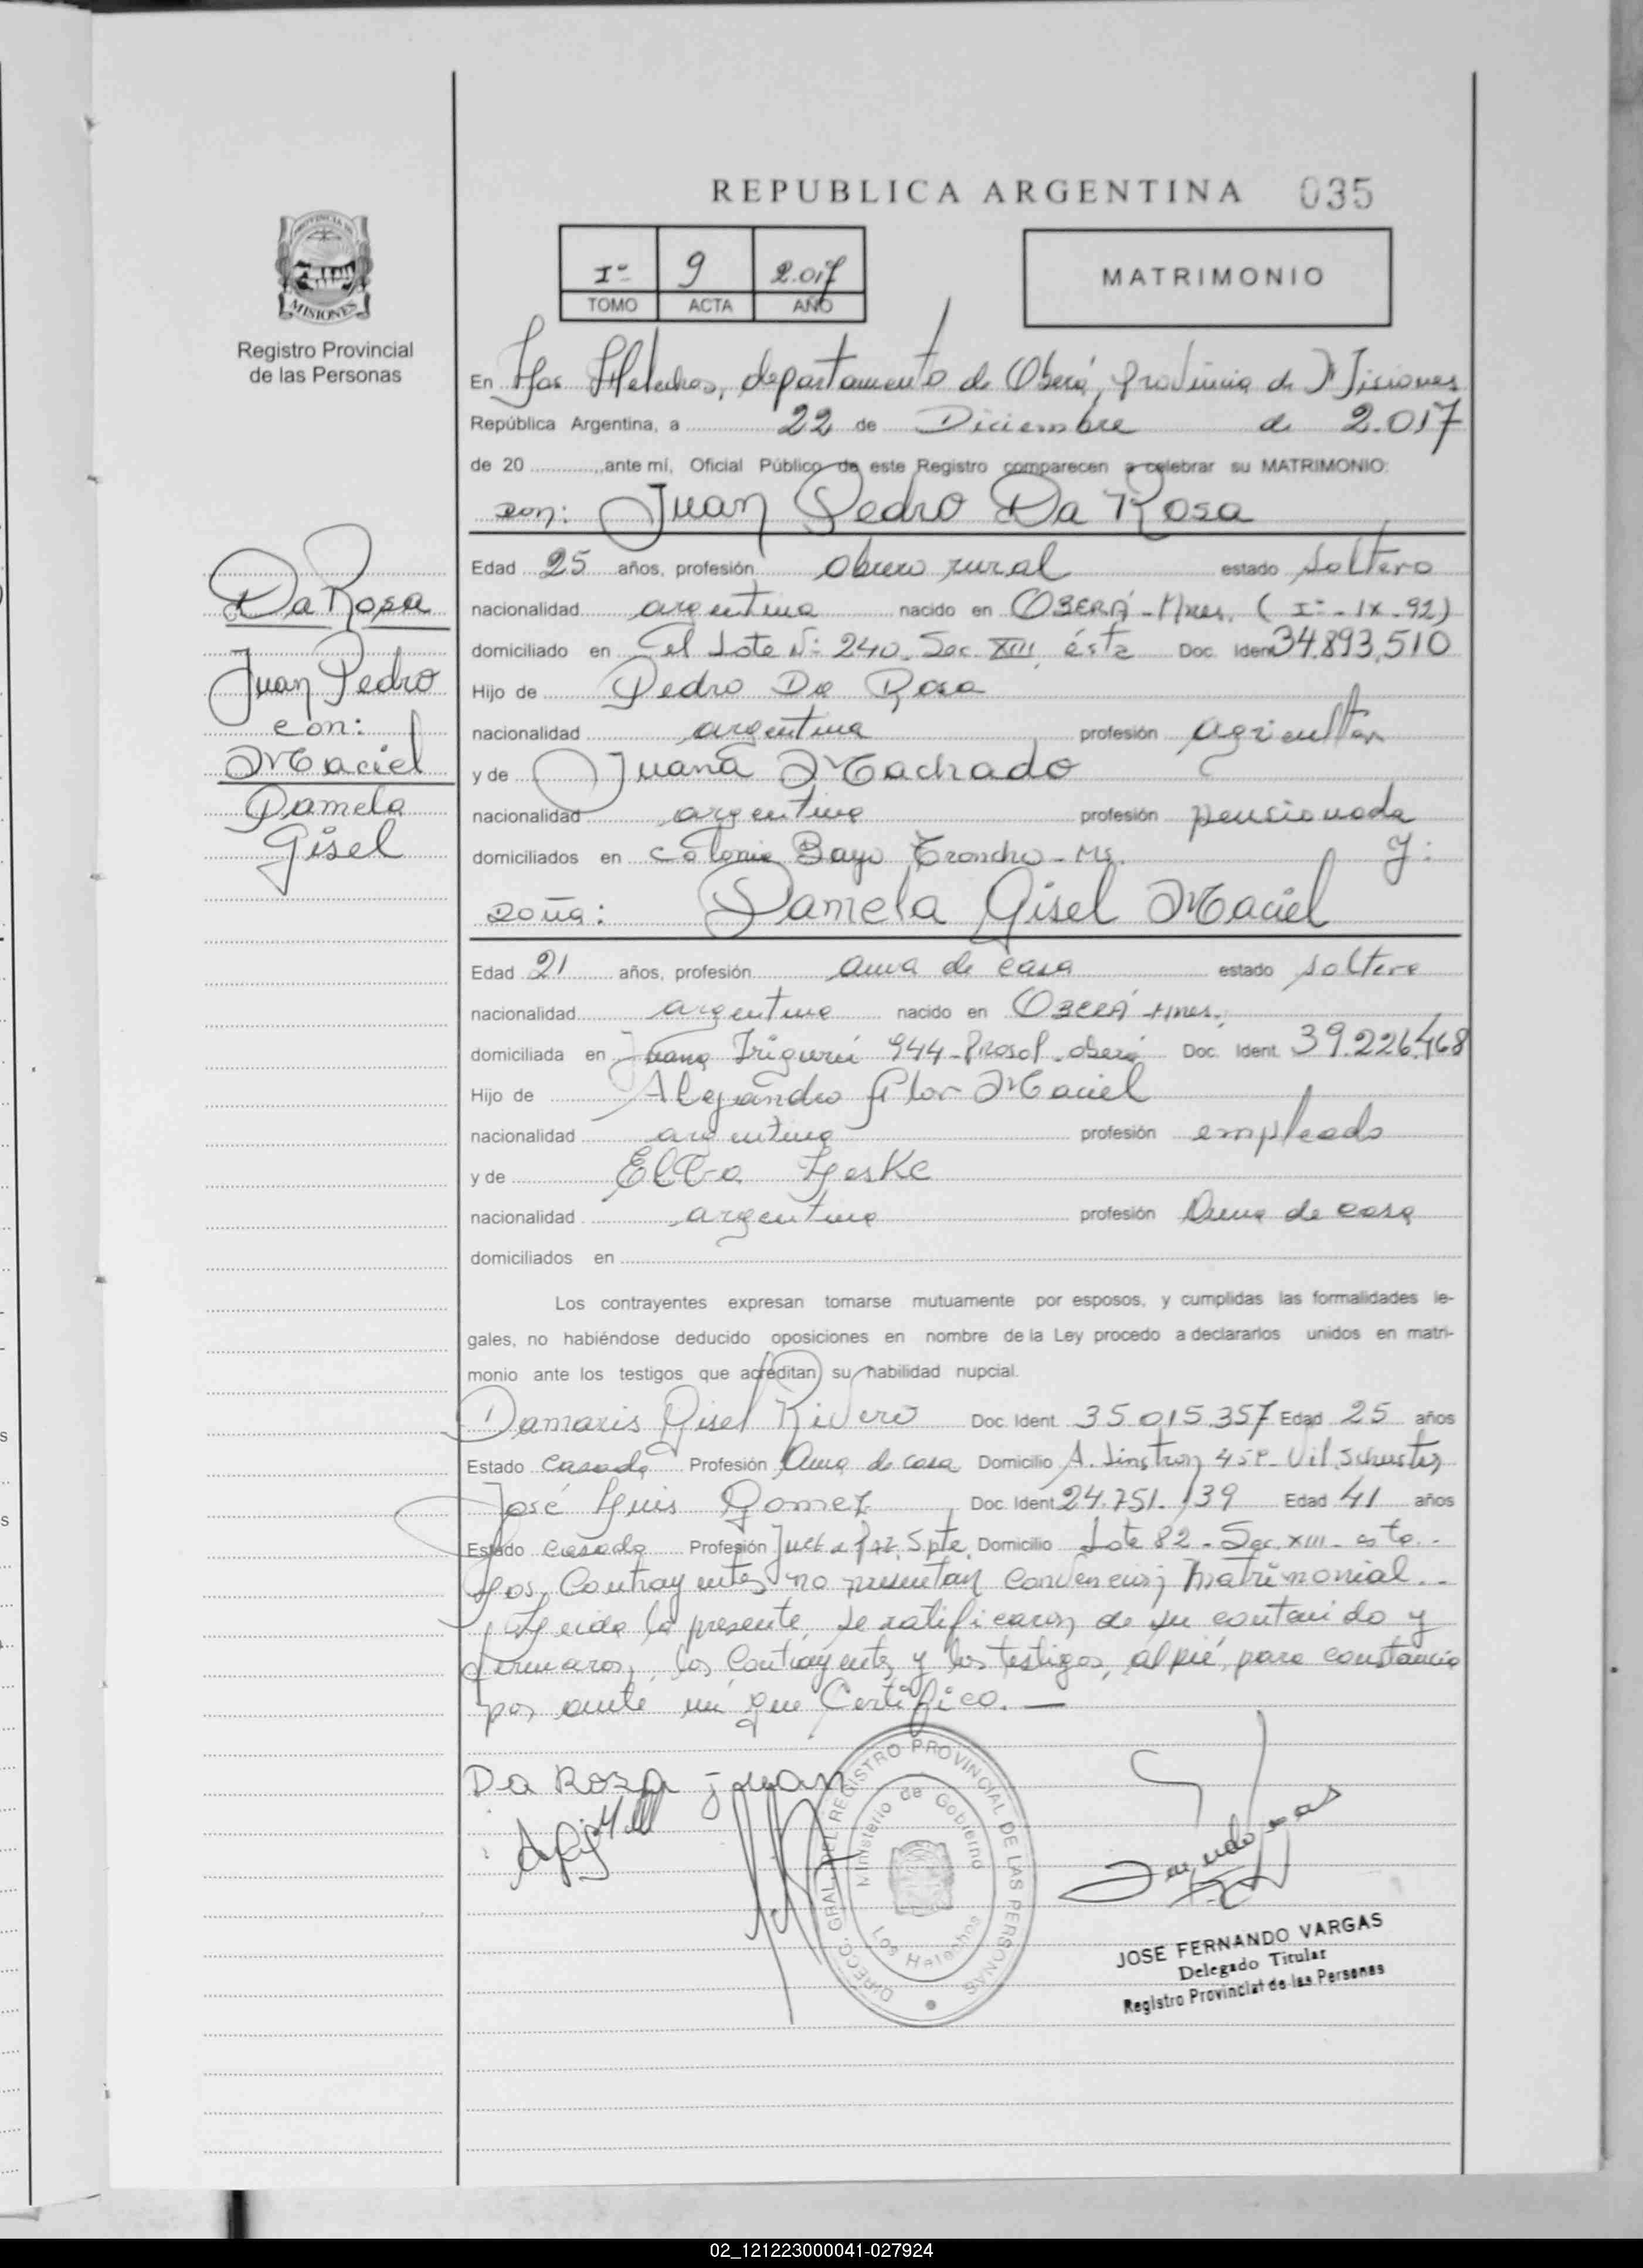 REPUBLICA ARGENTINA 035
PROVINCIA DE
MISIONES
Registro Provincial
de las Personas
Iº 9 2.017
TOMO ACTA AÑO
MATRIMONIO
En Los Helechos, departamento de Oberá, Provincia de Misiones
República Argentina, a 22 de Diciembre de 2.017
de 20 , ante mí, Oficial Público de este Registro comparecen a celebrar su MATRIMONIO:
Don: Juan Pedro Da Rosa
Da Rosa
Juan Pedro
con:
Maciel
Pamela
Gisel
Edad 25 años, profesión obrero rural estado soltero
nacionalidad argentina nacido en OBERÁ - Mnes. (Iº - IX - 92)
domiciliado en el Lote Nº 240 - Sec. XIII, ésta Doc. Ident 34.893.510
Hijo de Pedro Da Rosa
nacionalidad argentina profesión agricultor
y de Juana Machado
nacionalidad argentina profesión pensionada
domiciliados en colonia Bayo Troncho - Ms. Y:
Doña: Pamela Gisel Maciel
Edad 21 años, profesión ama de casa estado soltera
nacionalidad argentina nacido en OBERÁ - Mnes.
domiciliada en 944 - Prosol - Oberá Doc. Ident. 39.226.468
Hijo de Alejandro Flor Maciel
nacionalidad argentina profesión empleado
y de Elba Leske
nacionalidad argentina profesión Ama de casa
domiciliados en
Los contrayentes expresan tomarse mutuamente por esposos, y cumplidas las formalidades le-
gales, no habiéndose deducido oposiciones en nombre de la Ley procedo a declararlos unidos en matri-
monio ante los testigos que acreditan su habilidad nupcial.
Damaris Gisel Rivero Doc. Ident. 35.015.357 Edad 25 años
Estado casada Profesión Ama de casa Domicilio A. Vil. Schuster
José Luis Gomez Doc. Ident. 24.751.139 Edad 41 años
Estado casado Profesión Juez de Paz Spte. Domicilio Lote 82 - Sec. XIII - esta.
Los Contrayentes no presentan convención Matrimonial.
Leida la presente, se ratificaron de su contenido y
firmaron, los Contrayentes y los testigos, al pié, para constancia
por ante mi que Certifico.
Da Roza juan
DIRECC. GRAL. DEL REGISTRO PROVINCIAL DE LAS PERSONAS
Ministerio de Gobierno
Los Helechos
JOSE FERNANDO VARGAS
Delegado Titular
Registro Provincial de las Personas
02_121223000041-027924